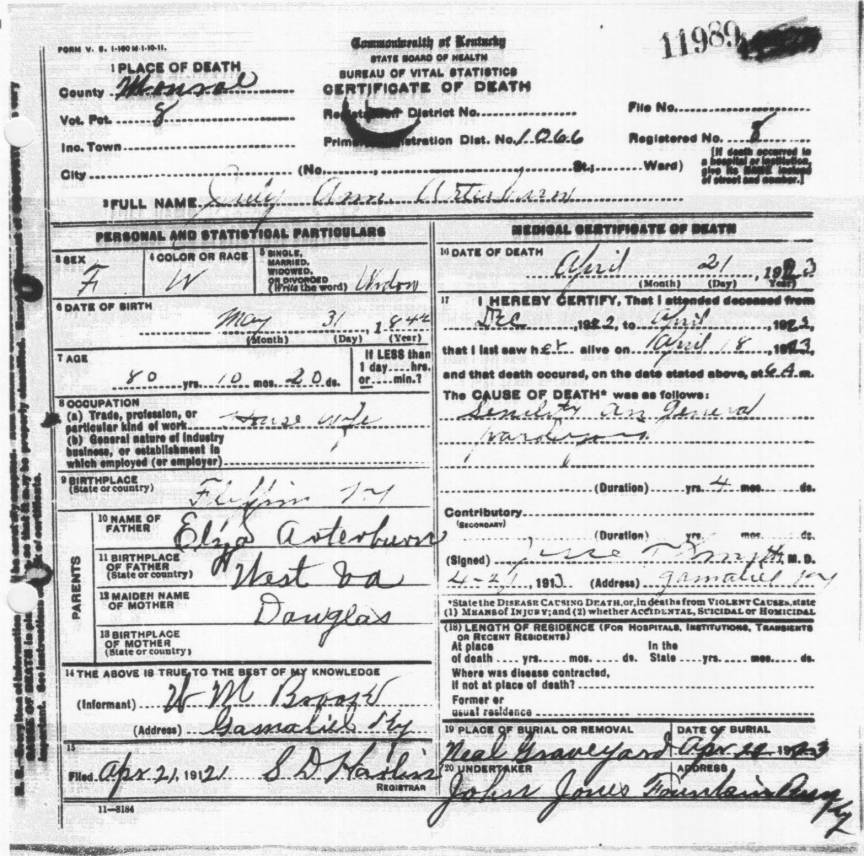 FORM V. S. 1-100 M-1-10-11.
11989
Commonwealth of Kentucky
STATE BOARD OF HEALTH
BUREAU OF VITAL STATISTICS
CERTIFICATE OF DEATH
1 PLACE OF DEATH
County Monroe
Vot. Pct. 8
Inc. Town
City (No. , St.; Ward)
Registration District No.
Primary Registration Dist. No. 1066
File No.
Registered No. 8
[If death occurred in
a hospital or institution,
give its NAME instead
of street and number.]
2 FULL NAME Ann Arterburn
PERSONAL AND STATISTICAL PARTICULARS
3 SEX
F
4 COLOR OR RACE
W
5 SINGLE,
MARRIED,
WIDOWED,
OR DIVORCED
(Write the word) Widow
6 DATE OF BIRTH
May 31 1842
(Month) (Day) (Year)
7 AGE
80 yrs. 10 mos. 20 ds.
If LESS than
1 day....hrs.
or....min.?
8 OCCUPATION
(a) Trade, profession, or
particular kind of work House wife
(b) General nature of industry
business, or establishment in
which employed (or employer)
9 BIRTHPLACE
(State or country)
Ky
PARENTS
10 NAME OF
FATHER
Arterburn
11 BIRTHPLACE
OF FATHER
(State or country)
West Va
12 MAIDEN NAME
OF MOTHER
Douglas
13 BIRTHPLACE
OF MOTHER
(State or country)
14 THE ABOVE IS TRUE TO THE BEST OF MY KNOWLEDGE
(Informant) W M
(Address) Gamaliel Ky
15
Filed Apr 21, 1921 S D Harlin
REGISTRAR
11-3184
MEDICAL CERTIFICATE OF DEATH
16 DATE OF DEATH
April 21 1923
(Month) (Day) Year)
17 I HEREBY CERTIFY, That I attended deceased from
Dec , 1922, to April , 1923,
that I last saw her alive on April 18, 1923,
and that death occured, on the date stated above, at 6 A m.
The CAUSE OF DEATH* was as follows:
Senility an general
(Duration) yrs. 4 mos. ds.
Contributory
(SECONDARY)
(Duration) yrs. mos. ds.
(Signed) M. D.
4-21 1913 (Address) Gamaliel Ky
*State the DISEASE CAUSING DEATH, or, in deaths from VIOLENT CAUSES, state
(1) MEANS OF INJURY; and (2) whether ACCIDENTAL, SUICIDAL or HOMICIDAL
(18) LENGTH OF RESIDENCE (FOR HOSPITALS, INSTITUTIONS, TRANSIENTS
OR RECENT RESIDENTS)
At place In the
of death .... yrs. .... mos. .... ds. State .... yrs. .... mos. .... ds.
Where was disease contracted,
if not at place of death?
Former or
usual residence
19 PLACE OF BURIAL OR REMOVAL
Neal Graveyard
DATE OF BURIAL
Apr. 22, 1923
20 UNDERTAKER
John Jones
ADDRESS
Fountain Run
Ky